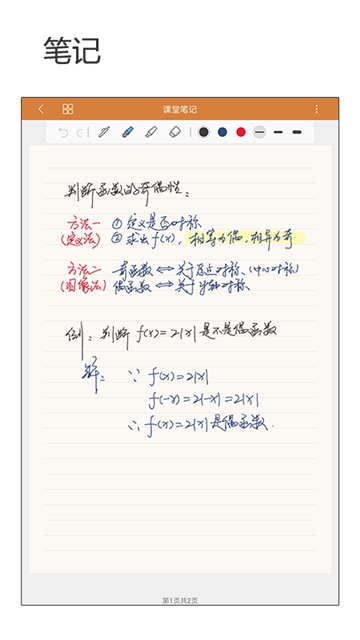 笔记
课堂笔记
判断函数的奇偶性：
方法一 ① 定义是否对称
(定义法) ② 求出f(x)，相等为偶，相异为奇
方法二 奇函数 ⇔ 关于原点对称 (中心对称)
(图像法) 偶函数 ⇔ 关于y轴对称
例：判断 f(x)=2|x| 是不是偶函数
解： ∵ f(x)=2|x|
f(-x)=2|-x|=2|x|
∴ f(x)=2|x| 是偶函数.
第1页共2页